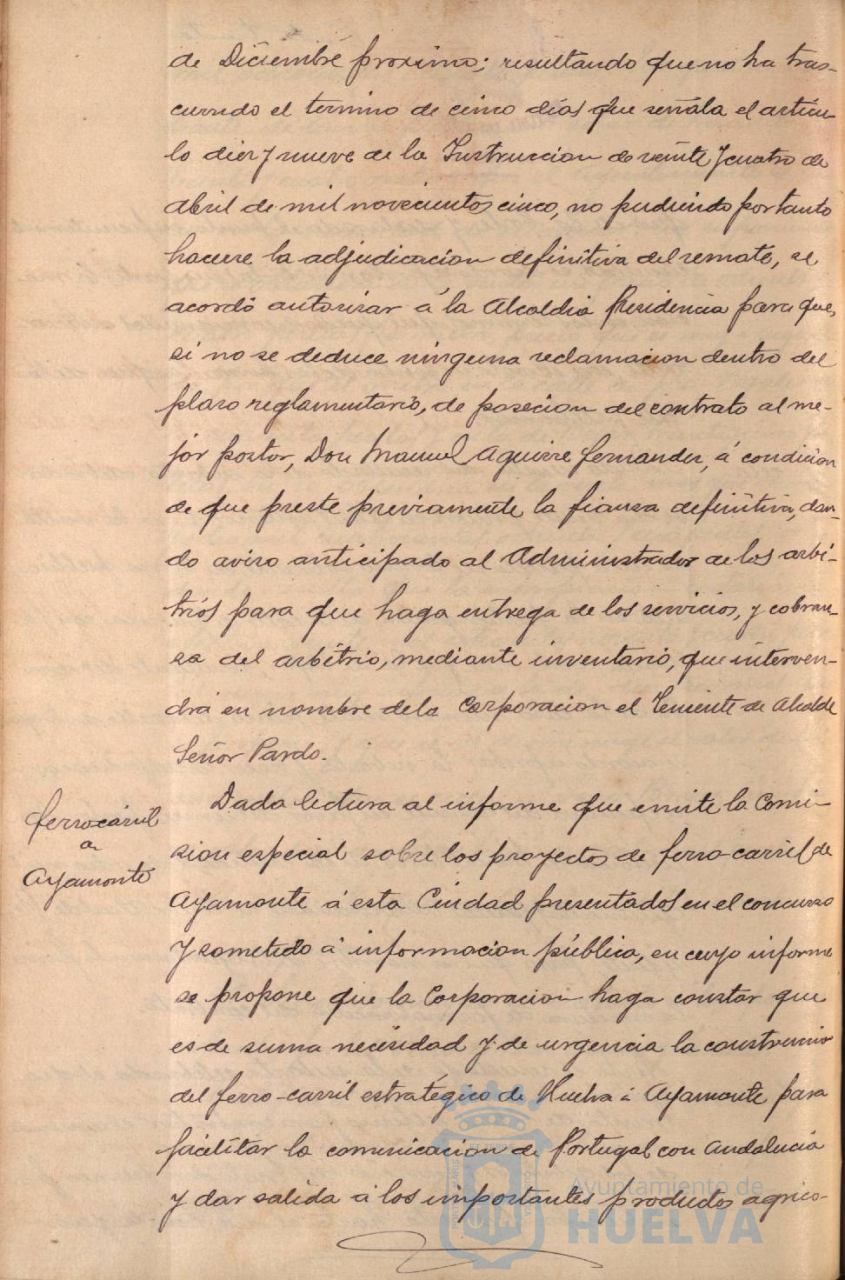 de Diciembre proximo; resultando que no ha tras-
currido el termino de cinco dias que señala el artícu-
lo diez y nueve de la Instruccion de veinte y cuatro de
Abril de mil novecientos cinco, no pudiendo por tanto
hacerse la adjudicacion definitiva del remate, se
acordó autorizar á la Alcaldia Presidencia para que,
si no se deduce ninguna reclamacion dentro del
plazo reglamentario, de posecion del contrato al me-
jor postor, Don Manuel Aguirre Fernandez, á condicion
de que preste previamente la fianza definitiva, dan-
do aviso anticipado al Administrador de los arbi-
trios para que haga entrega de los servicios, y cobran-
za del arbitrio, mediante inventario, que interven-
drá en nombre de la Corporacion el Teniente de Alcalde
Señor Pardo.
Ferrocarril
a
Ayamonte
Dada lectura al informe que emite la Comi-
sion especial sobre los proyectos de ferro-carril de
Ayamonte á esta Ciudad presentados en el concurso
y sometido á informacion pública, en cuyo informe
se propone que la Corporacion haga constar que
es de suma necesidad y de urgencia la construccion
del ferro-carril estratégico de Huelva á Ayamonte para
facilitar la comunicacion de Portugal con Andalucia
y dar salida á los importantes productos agrico-
Ayuntamiento de
HUELVA